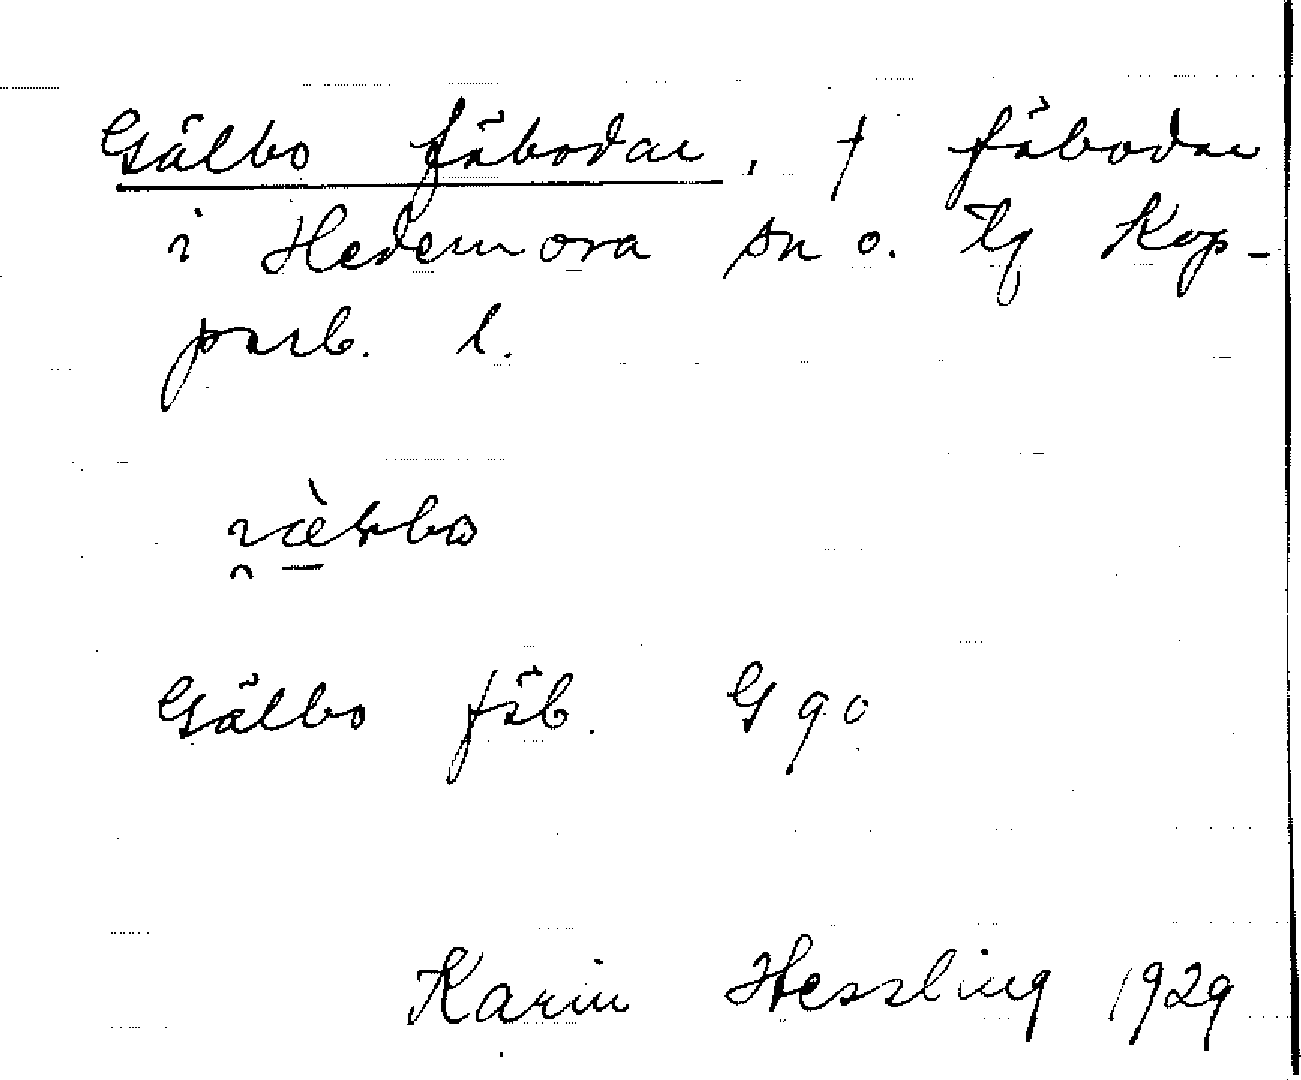 Gälbo fäbodar, † fäbodar
i Hedemora sn o. tg Kop-
parb. l.
Gälbo fäb. G 90
Karin Hessling 1929